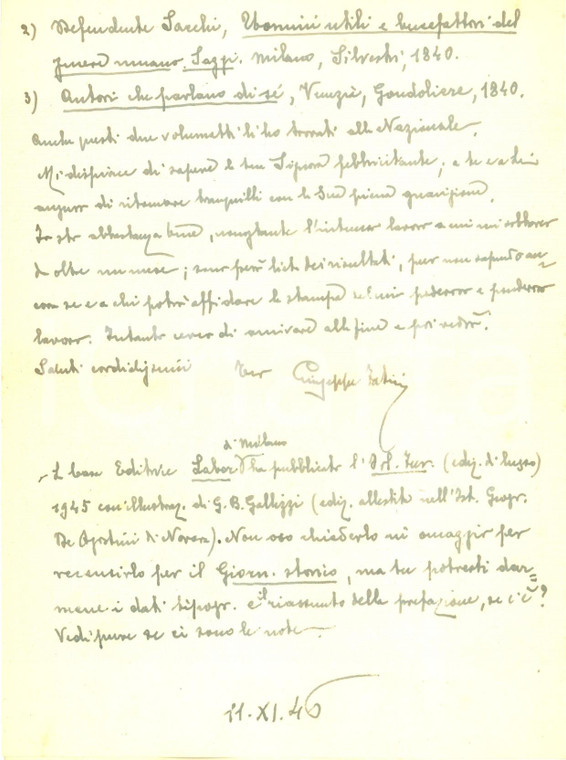 2) Defendente Sacchi, Uomini utili e benefattori del
genere umano. Saggi. Milano, Silvestri, 1840.
3) Autori che parlano di sé, Venezia, Gondoliere, 1840.
Anche questi due volumetti li ho trovati alla Nazionale.
Mi dispiace di sapere la tua Signora febbricitante; a te e a lei
auguro di ritornare tranquilli con la sua piena guarigione.
Io sto abbastanza bene, nonostante l'intenso lavoro a cui mi sobbarco
da oltre un mese; sono però lieto dei risultati, pur non sapendo an-
cora se e a chi potrò affidare la stampa del mio
lavoro. Intanto cerco di arrivare alla fine e poi vedrò.
Saluti cordialissimi Tuo Giuseppe Fatini
di Milano
La Casa Editrice Labor ha pubblicato l'Orl. Fur. (ediz. di lusso)
1945 con illustraz. di G. B. Gallizzi (ediz. allestita nell'Ist. Geogr.
De Agostini di Novara). Non oso chiederlo in omaggio per
recensirlo per il Giorn. storico, ma tu potresti dar=
mene i dati tipogr. e il riassunto della prefazione, se c'è?
Vedi pure se ci sono le note.
11.XI.46